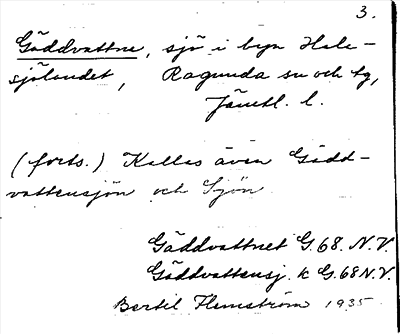 3.
Gäddvattne, sjö i byn Hale-
sjölandet, Ragunda sn och tg,
Jämtl. l.
(forts.) Kallas även Gädd-
vattensjön och Sjön
Gäddvattnet G.68.N.V.
Gäddvattensj. k G.68N.V.
Bertil Flemström 1935